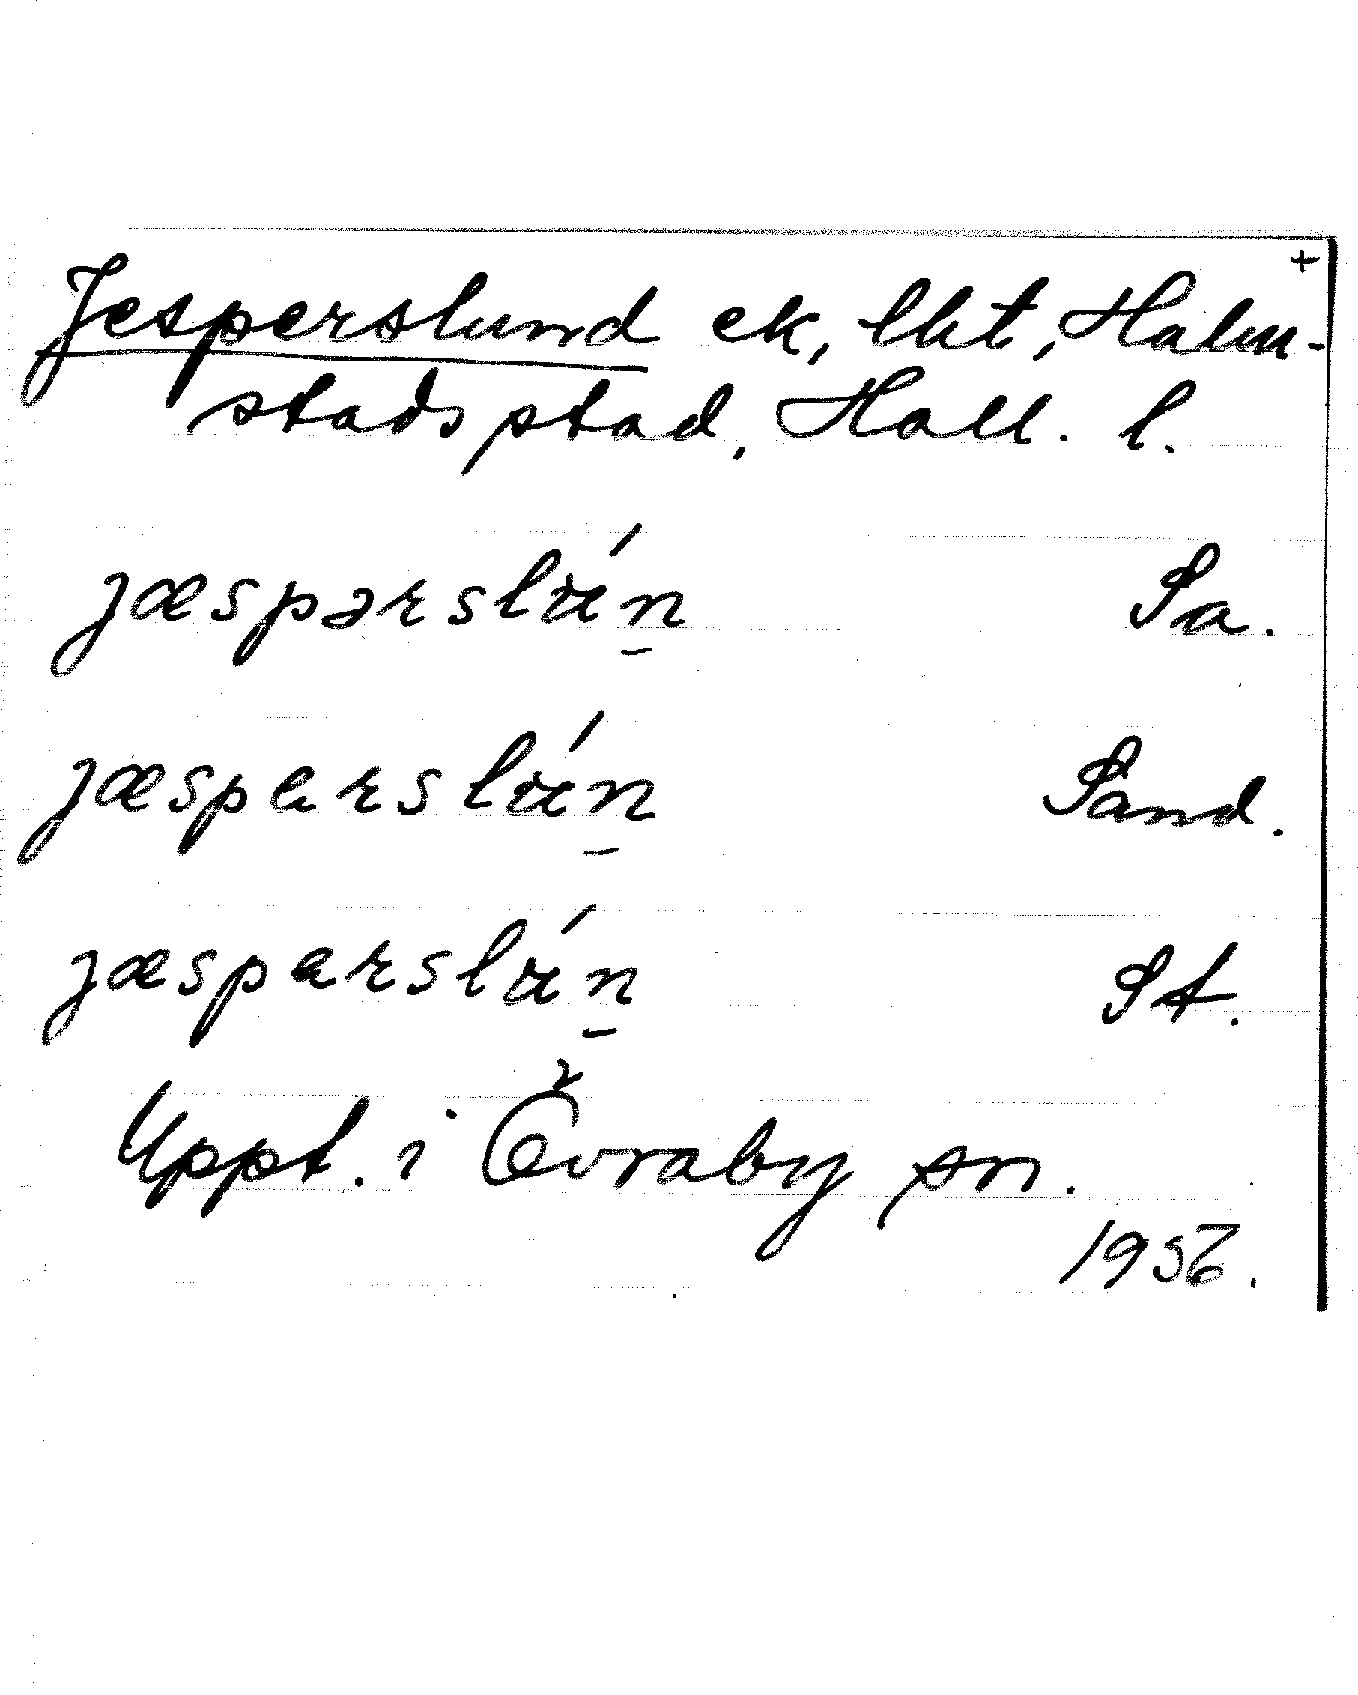 +
Jesperslund ek, lht, Halm-
stads stad, Hall. l.
jæspərslún̲ Sa.
jæsperslún̲ Sand.
jæsparslún̲ St.
Uppt. i Övraby sn.
1956.